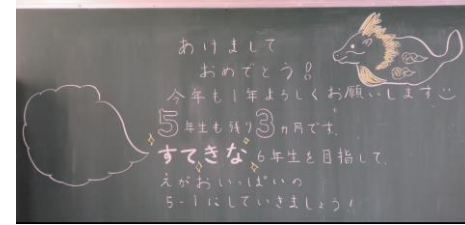 あけまして
おめでとう!
今年も1年よろしくお願いします
5年生も残り3ヵ月です。
すてきな6年生を目指して、
えがおいっぱいの
5-1にしていきましょう!